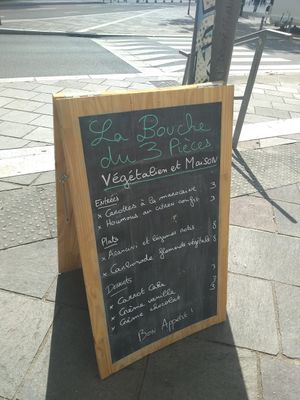 La Bouche
du 3 Pièces
Végétalien et Maison
Entrées
x Carottes à la marocaine 3
x Houmous au citron confit 3
Plats
x et légumes rotis 8
x Carbonade flamande végétale 8
Desserts
x Carrot Cake 3
x Crème vanille 3
x Crème chocolat 3
Bon Appetit !